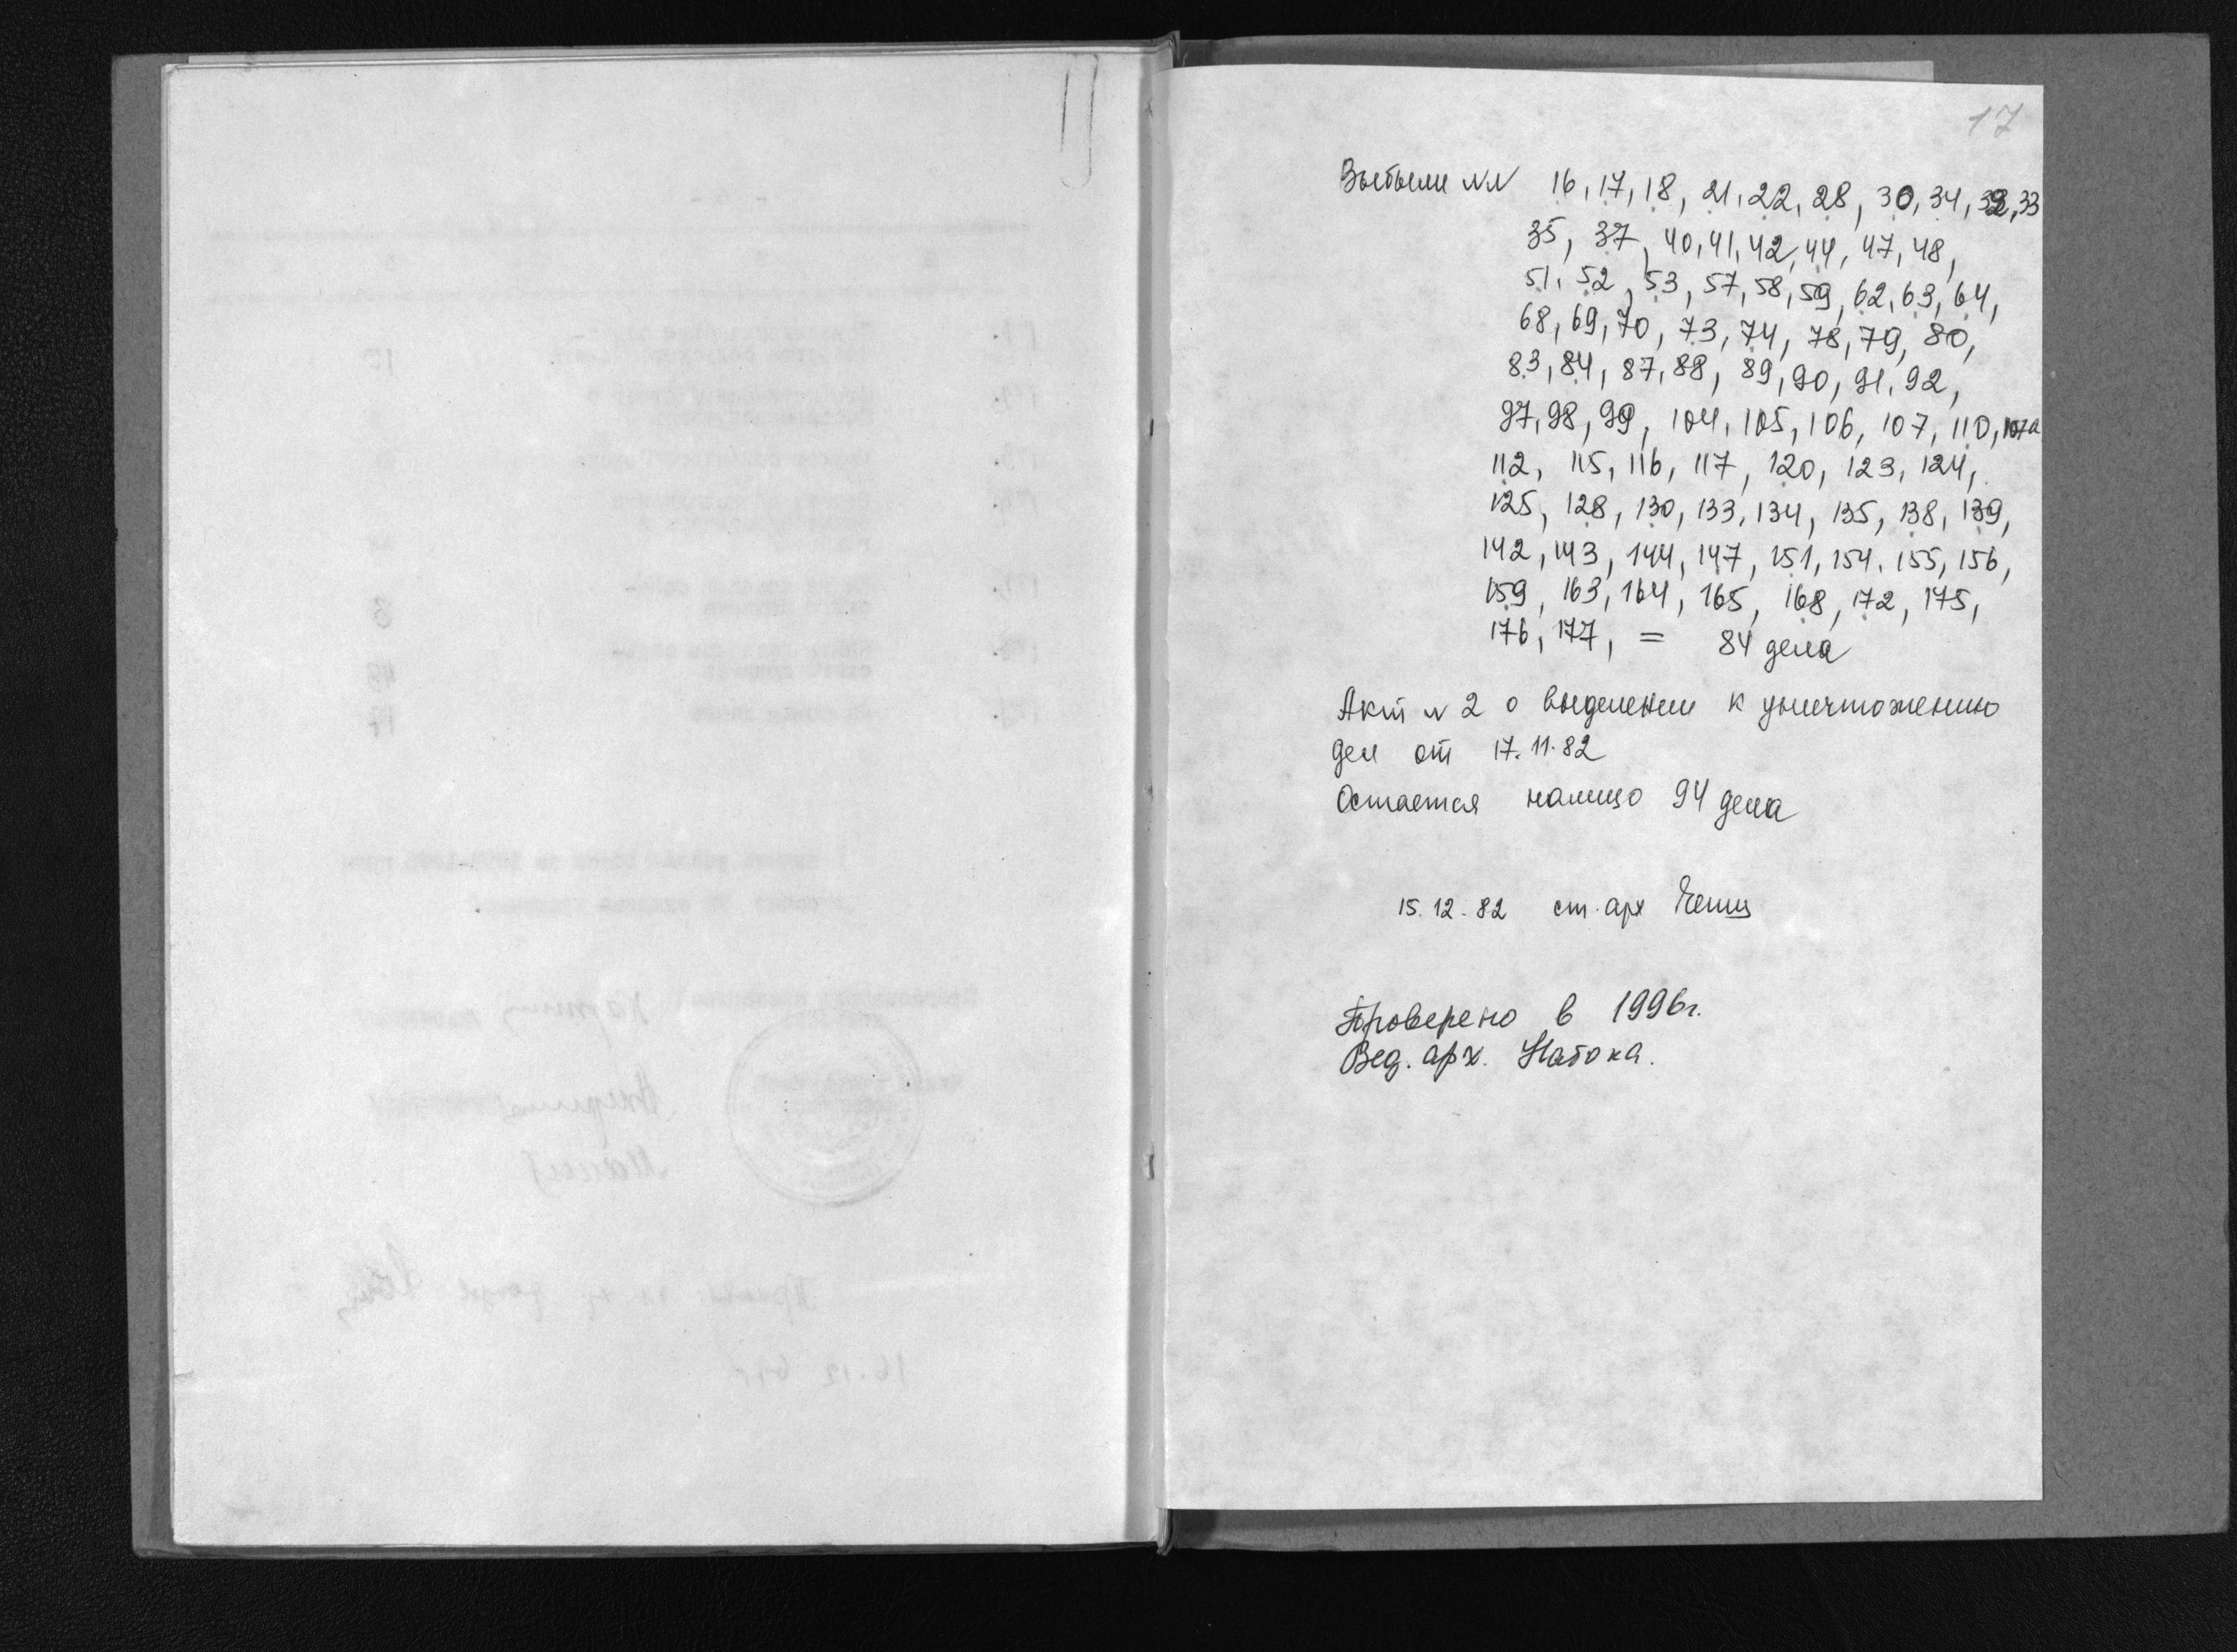 17
Выбыли №№ 16, 17, 18, 21, 22, 28, 30, 34, 32, 33
35, 37, 40, 41, 42, 44, 47, 48,
51, 52, 53, 57, 58, 59, 62, 63, 64,
68, 69, 70, 73, 74, 78, 79, 80,
83, 84, 87, 88, 89, 90, 91, 92,
97, 98, 99, 104, 105, 106, 107, 110, 107а
112, 115, 116, 117, 120, 123, 124,
125, 128, 130, 133, 134, 135, 138, 139,
142, 143, 144, 147, 151, 154, 155, 156,
159, 163, 164, 165, 168, 172, 175,
176, 177, = 84 дела
Акт № 2 о выделении к уничтожению
дел от 17.11.82
Остается налицо 94 дела
15.12.82 ст. арх
Проверено в 1996г.
Вед. арх. Набока.